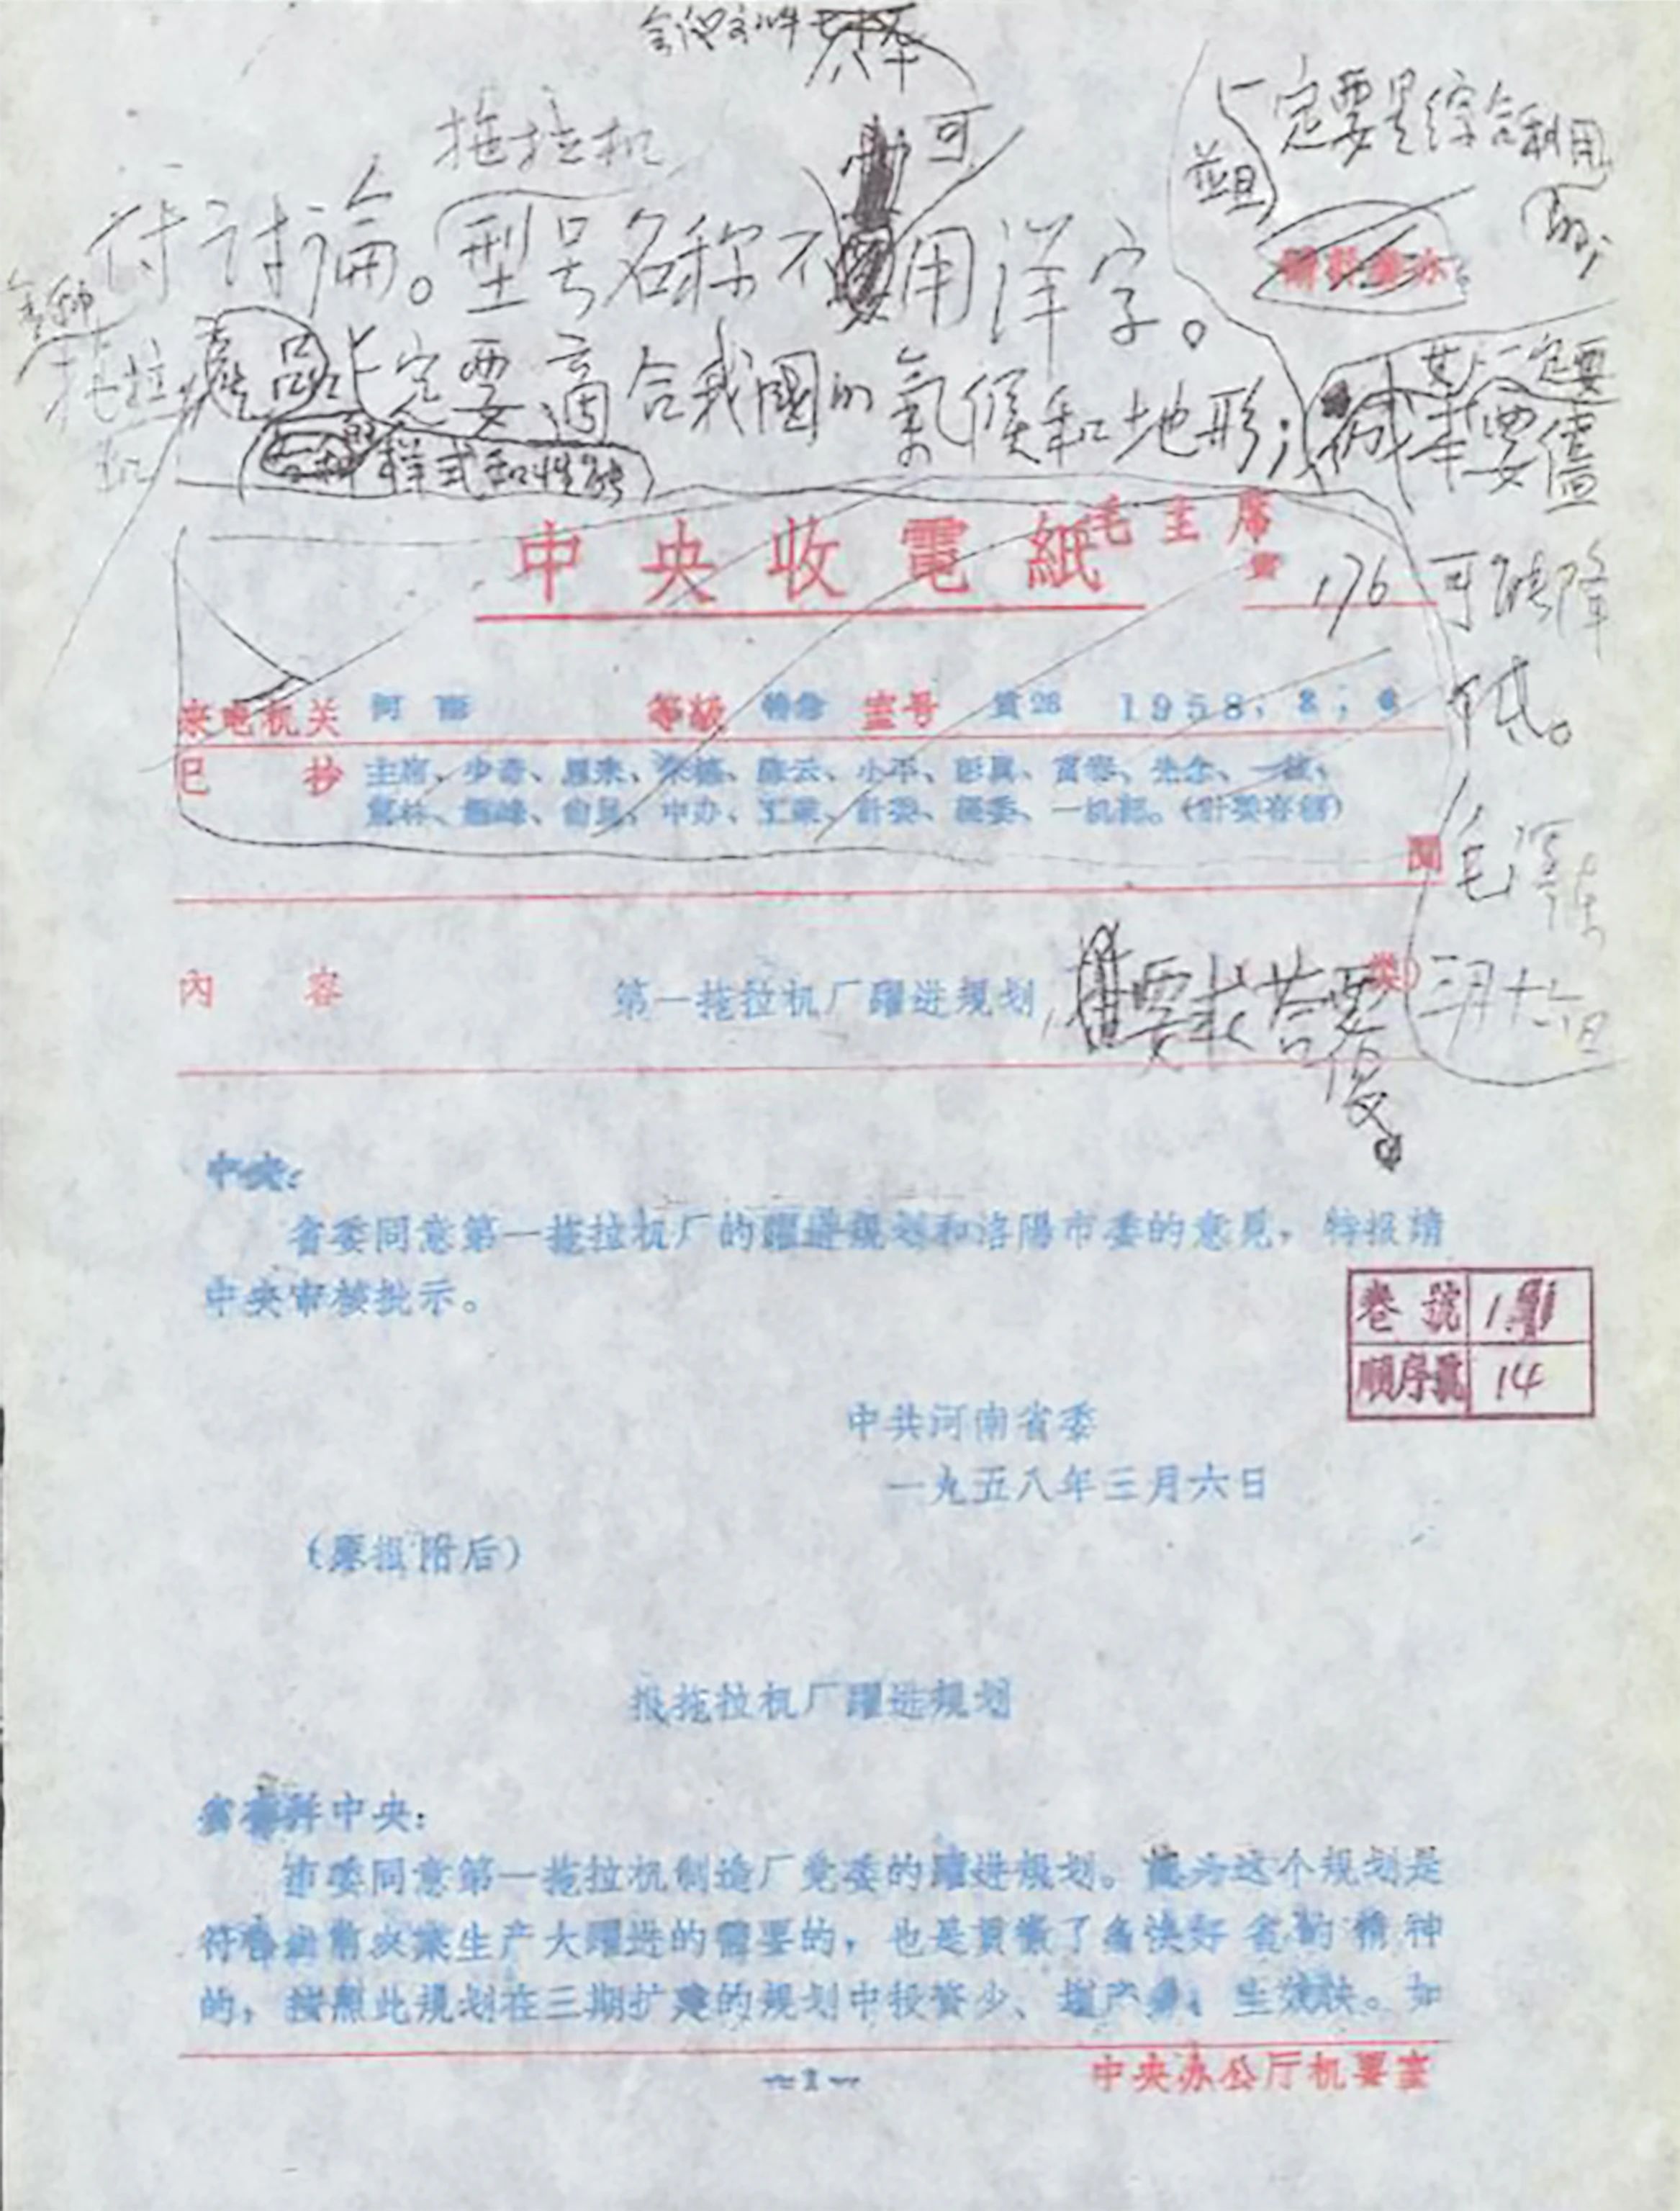 会议文件
拖拉机
可
一定要是综合利用
並且
的;
付讨論。型号名称不用洋字。
拖拉机
產品一定要適合我國的氣候和地形;
样式和性能
其
一定要
成本要儘
可能降
低。
毛泽东
三月十六日
中央收電紙
毛主席
176
来电机关 河南 等級 特急 室号 1958,3,6
已抄 主席、少奇、恩来、朱德、陈云、小平、彭真、富春、先念、一波、
中办、工業、計委、經委、一机部。(計委存檔)
閱
内容 第一拖拉机厂躍进规划 要求荅覆。
类)
中央:
省委同意第一拖拉机厂的躍进规划和洛陽市委的意見,特报請
中央审核批示。
卷號
順序號 14
中共河南省委
一九五八年三月六日
(原报附后)
报拖拉机厂躍进规划
省委并中央:
市委同意第一拖拉机制造厂党委的躍进规划。認为这个规划是
符合当前农業生产大躍进的需要的,也是貫徹了多快好省的精神
的,按照此规划在三期扩建的规划中投資少、增产多、生效快。如
—1—
中央办公厅机要室